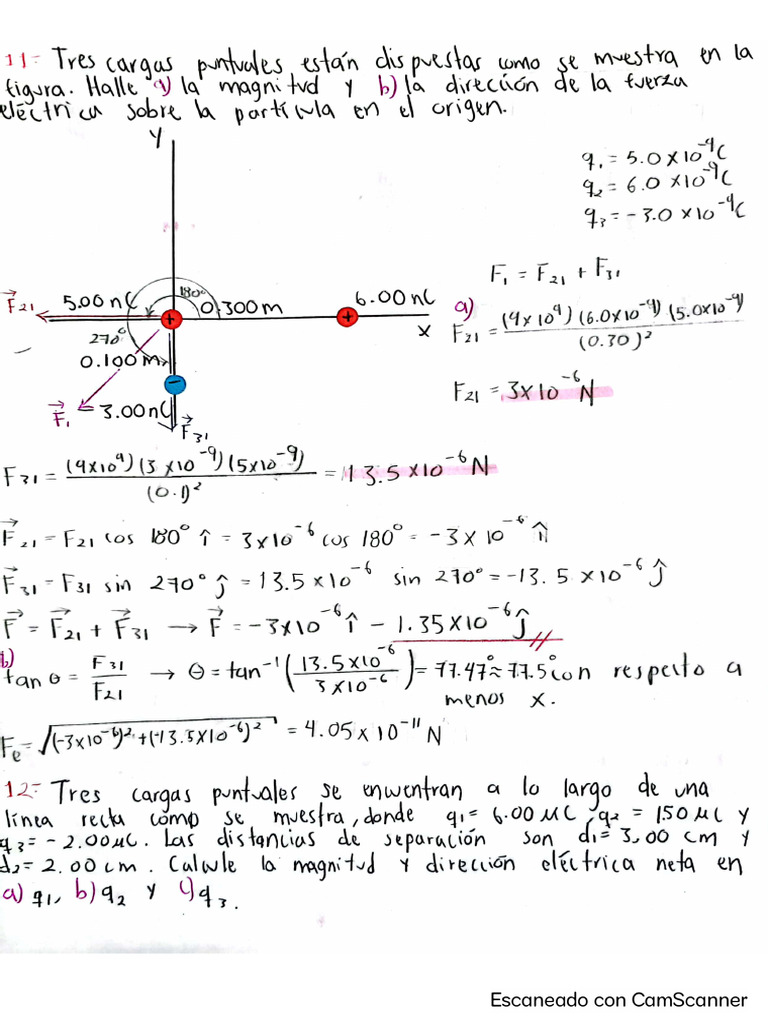 11.- Tres cargas puntuales están dispuestas como se muestra en la
figura. Halle a) la magnitud y b) la dirección de la fuerza
eléctrica sobre la partícula en el origen.
Y
q₁ = 5.0 x 10⁻⁹ C
q₂ = 6.0 x 10⁻⁹ C
q₃ = -3.0 x 10⁻⁹ C
F₁ = F₂₁ + F₃₁
F⃗₂₁ 5.00 nC 180° 0.300 m 6.00 nC
+ + x
270°
0.100 m
−
F⃗₁ -3.00 nC
F⃗₃₁
a)
F₂₁ = (9 x 10⁹)(6.0 x 10⁻⁹)(5.0 x 10⁻⁹) / (0.30)²
F₂₁ = 3 x 10⁻⁶ N
F₃₁ = (9 x 10⁹)(3 x 10⁻⁹)(5 x 10⁻⁹) / (0.1)² = 13.5 x 10⁻⁶ N
F⃗₂₁ = F₂₁ cos 180° î = 3 x 10⁻⁶ cos 180° = -3 x 10⁻⁶ î
F⃗₃₁ = F₃₁ sin 270° ĵ = 13.5 x 10⁻⁶ sin 270° = -13.5 x 10⁻⁶ ĵ
F⃗ = F⃗₂₁ + F⃗₃₁ → F⃗ = -3 x 10⁻⁶ î - 1.35 x 10⁻⁶ ĵ
b)
tan θ = F₃₁ / F₂₁ → θ = tan⁻¹ (13.5 x 10⁻⁶ / 3 x 10⁻⁶) = 77.47° ≈ 77.5° con respecto a
menos x.
Fₑ = √(-3 x 10⁻⁶)² + (-13.5 x 10⁻⁶)² = 4.05 x 10⁻¹¹ N
12.- Tres cargas puntuales se encuentran a lo largo de una
línea recta como se muestra, donde q₁ = 6.00 μC, q₂ = 150 μC y
q₃ = -2.00 μC. Las distancias de separación son d₁ = 3.00 cm y
d₂ = 2.00 cm. Calcule la magnitud y dirección eléctrica neta en
a) q₁, b) q₂ y c) q₃.
Escaneado con CamScanner